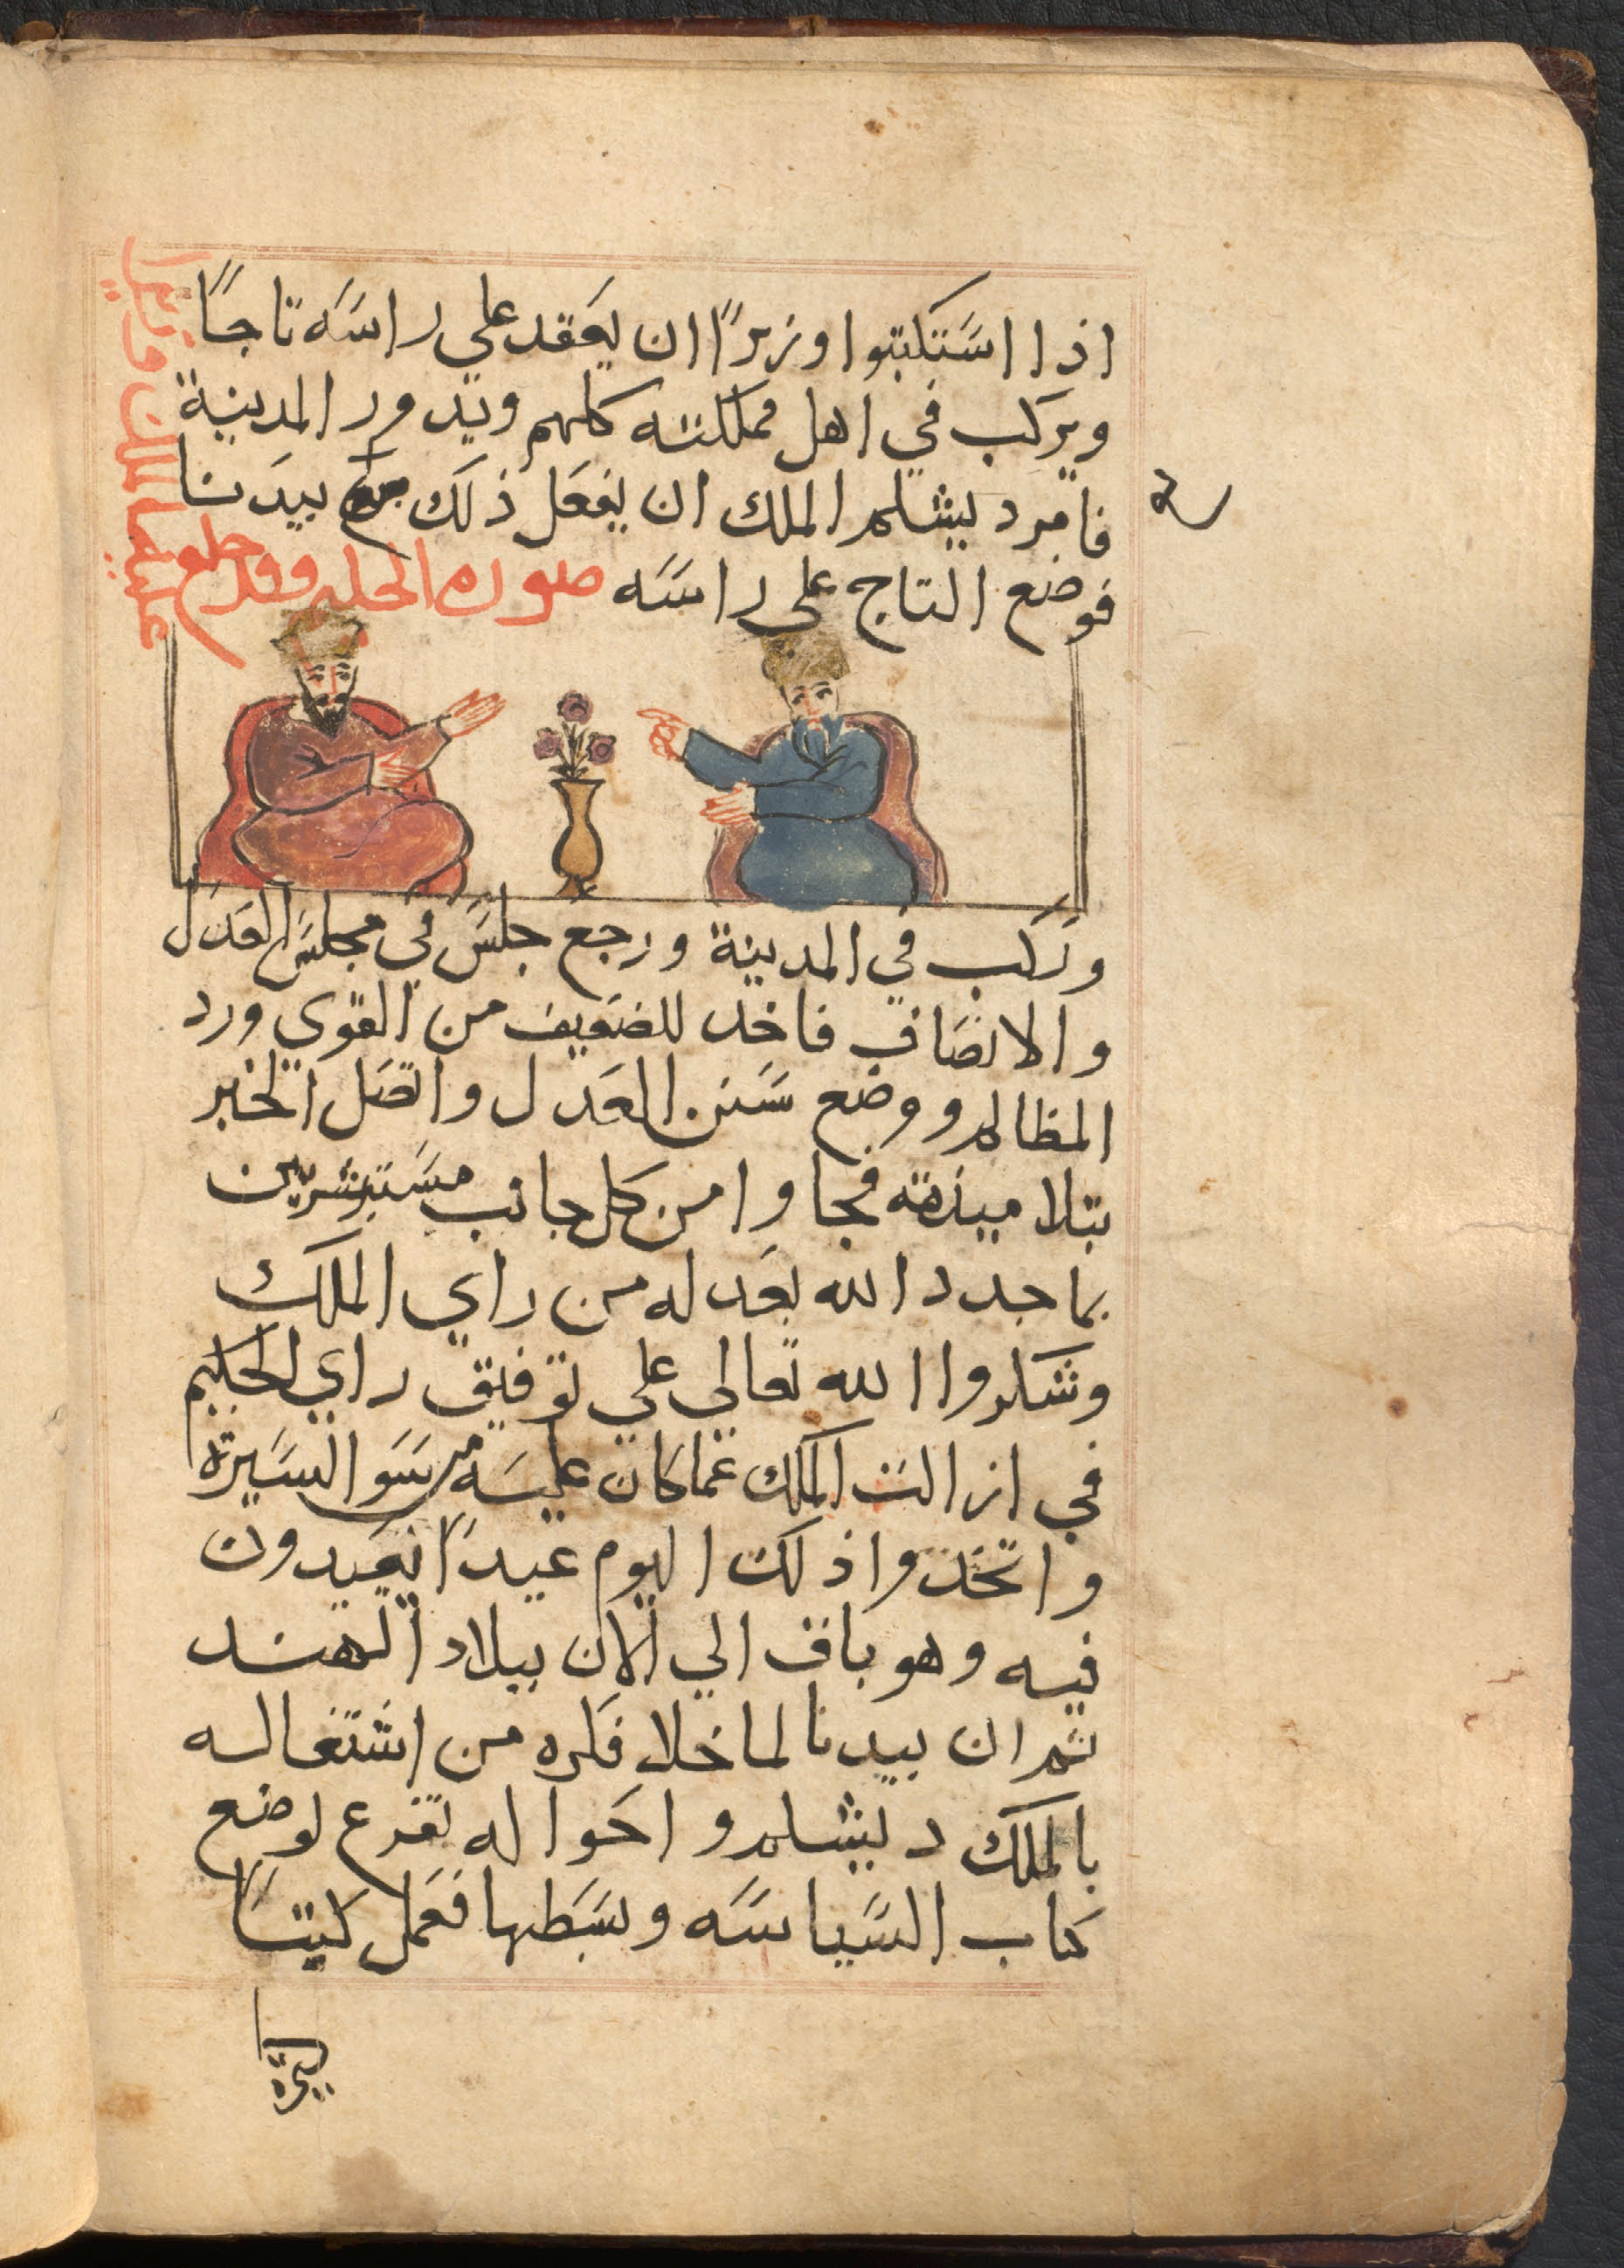 اذا استكتبوا وزيرًا ان يعقد علي راسه تاجًا
ويركب في اهل مملكته كلهم ويدور المدينة
فامر دبشلم الملك ان يفعل ذلك بيدنا
فوضع التاج على راسه صوره الحله وقد خلع
عليه الملك وزيرا
وركب في المدينة ورجع جلس في مجلس العدل
والانصاف فاخد للضعيف من القوي ورد
المظالم ووضع سنن العدل واتصل الخبر
بتلاميذته فجاوا من كل جانب مستبشرين
بما جدد الله بعد له من راي الملك
وشكروا الله تعالي علي توفيق راي الحكيم
في ازالت الملك عما كان عليه من سو السيرة
واتخذوا ذلك اليوم عيدًا يعيدون
فيه وهو باق الي الان ببلاد الهند
ثم ان بيدنا لما خلا فكره من اشتغاله
بالملك دبشلم واحواله تفرع لوضع
كتاب السياسه وبسطها فعمل كتبًا
كثيرة